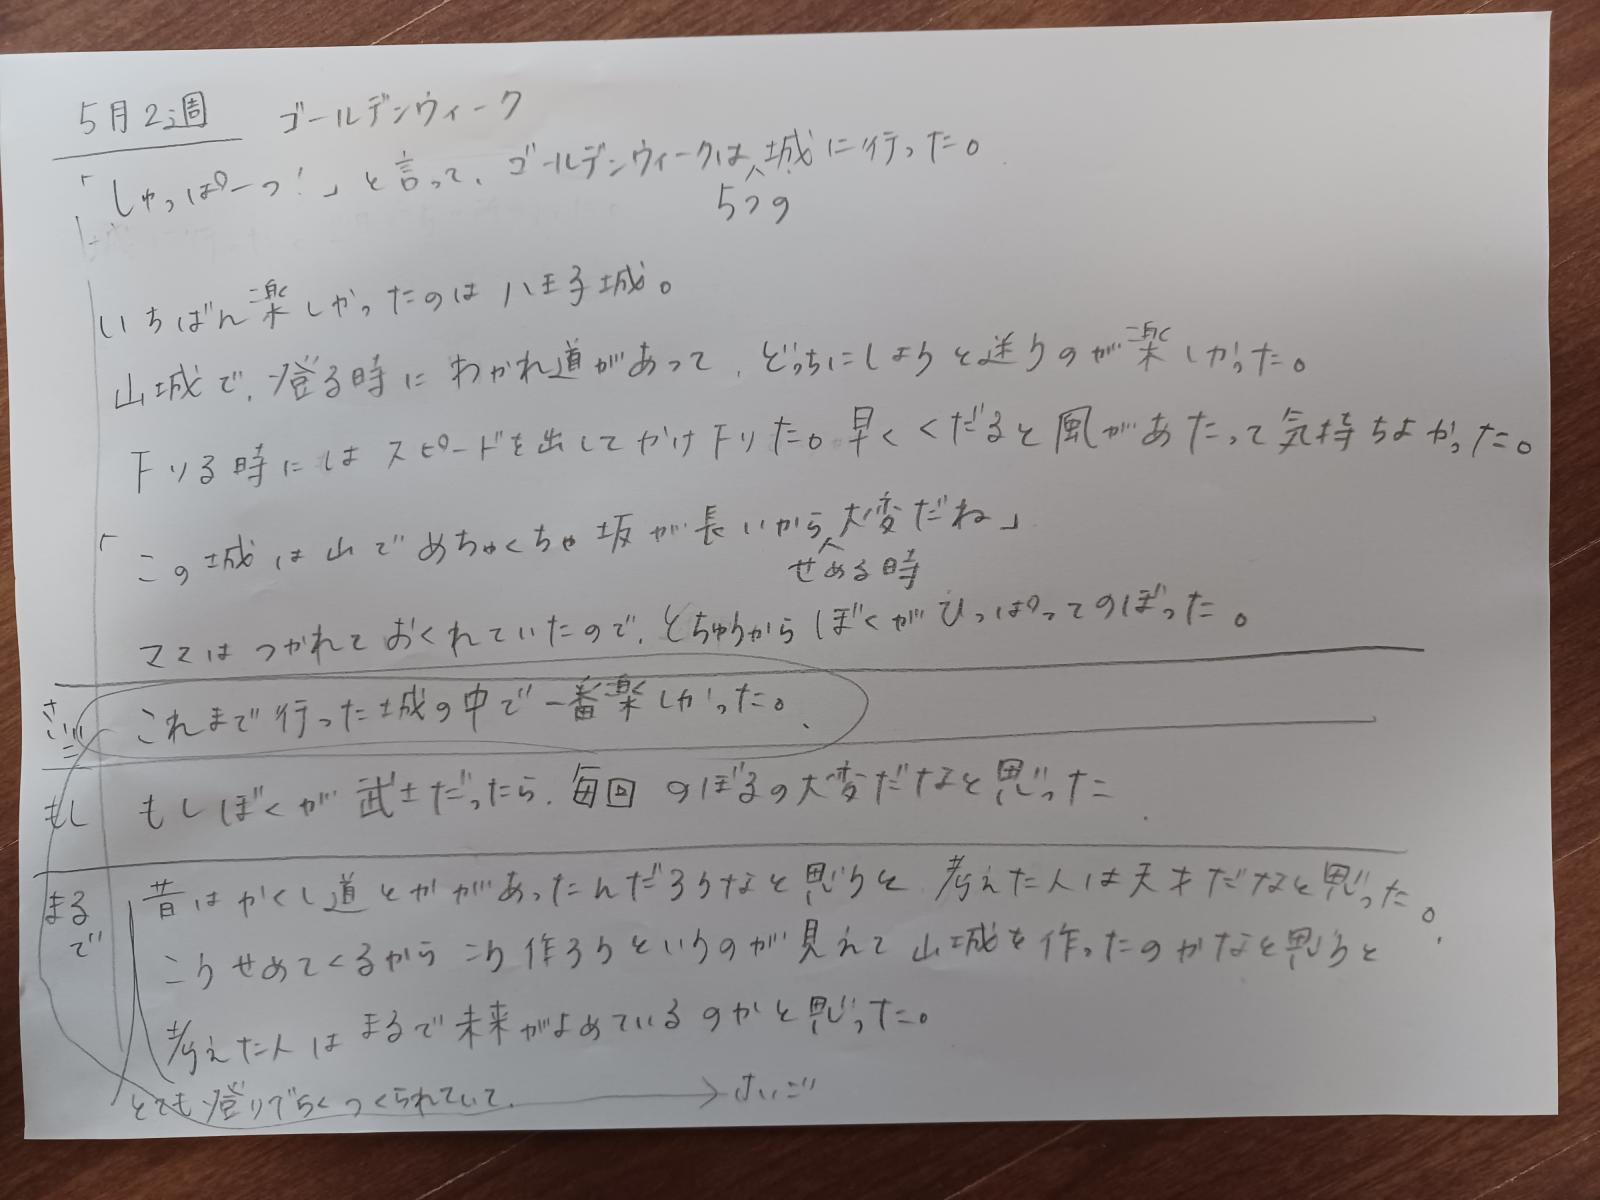 5月2週　ゴールデンウィーク
「しゅっぱーつ!」と言って、ゴールデンウィークは城に行った。
5つの
いちばん楽しかったのは八王子城。
山城で、登る時にわかれ道があって、どっちにしようと送りのが楽しかった。
下りる時にはスピードを出してかけ下りた。早くくだると風があたって気持ちよかった。
「この城は山でめちゃくちゃ坂が長いから大変だね」
せめる時
ママはつかれておくれていたので、とちゅうからぼくがひっぱってのぼった。
さいご　これまで行った城の中で一番楽しかった。
もし　もしぼくが武士だったら、毎回のぼるの大変だなと思った
まるで　昔はかくし道とかがあったんだろうなと思うと、考えた人は天才だなと思った。
こうせめてくるからこう作ろうというのが見えて山城を作ったのかなと思うと
考えた人はまるで未来がよめているのかと思った。
とても登りづらくつくられていて、→さいご